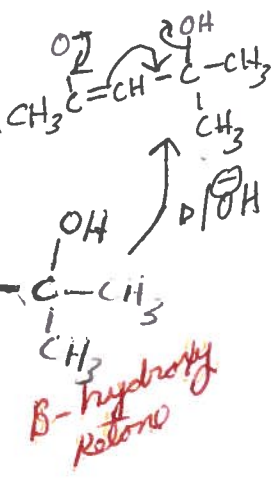 O⁻ OH
CH₃ C=CH-C-CH₃
CH₃
Δ/⊖OH
OH
-C-CH₃
CH₃
B-hydroxy
Ketone